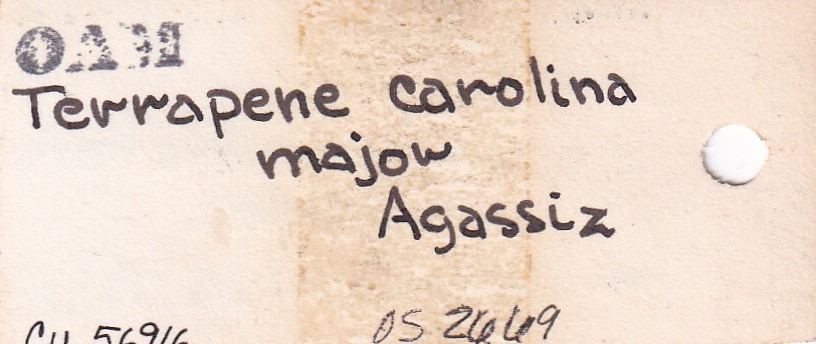 Terrapene carolina
major
Agassiz
CU 56916 OS 2669